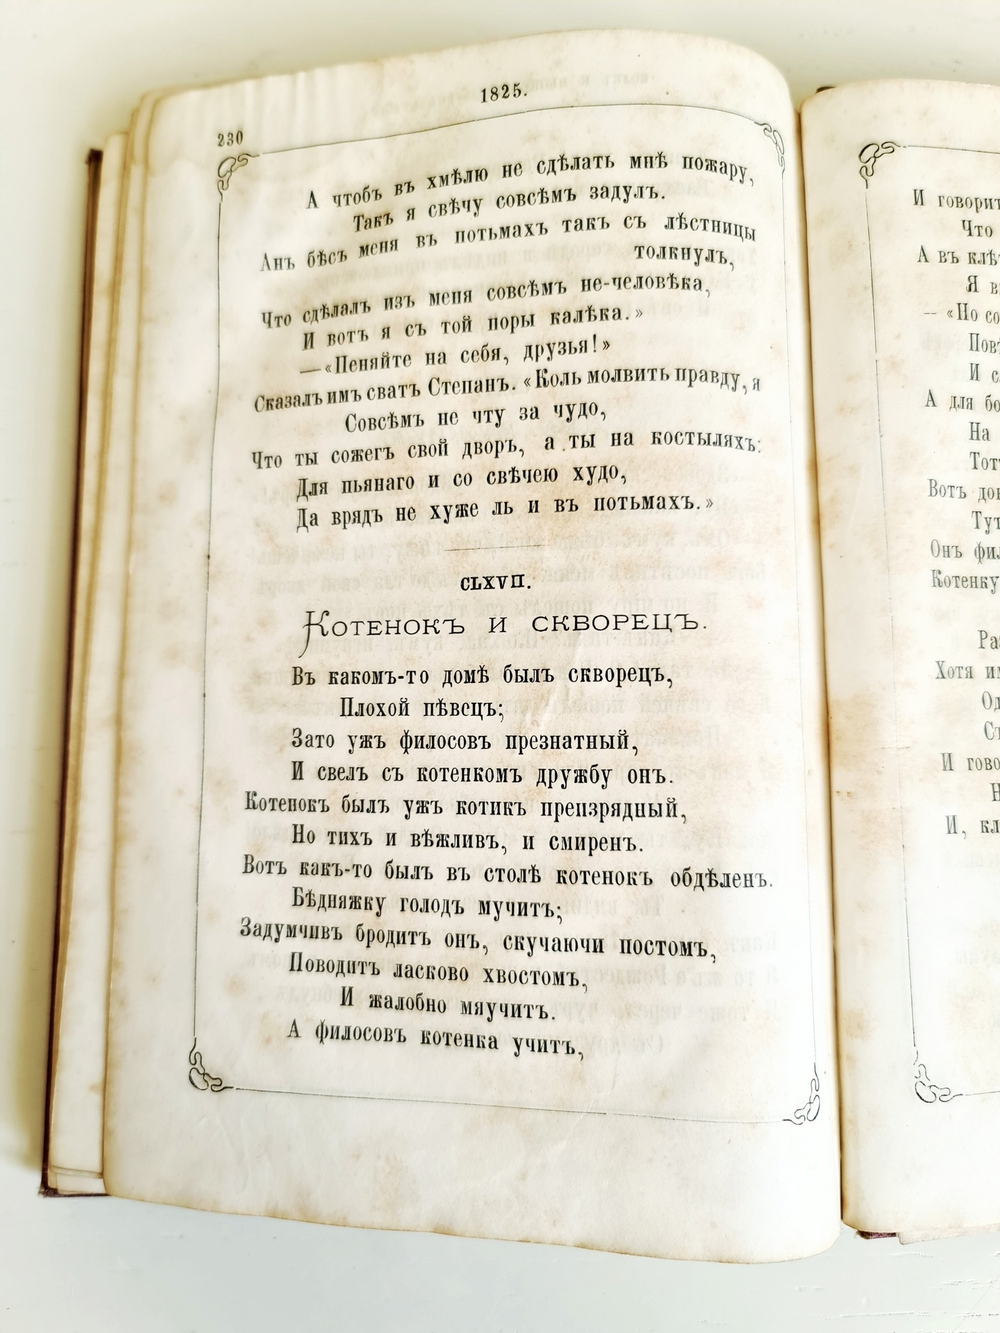 230
1825.
А чтобъ въ хмѣлю не сдѣлать мнѣ пожару,
Такъ я свѣчу совсѣмъ задулъ.
Анъ бѣсъ меня въ потьмахъ такъ съ лѣстницы
толкнулъ,
Что сдѣлалъ изъ меня совсѣмъ не-человѣка,
И вотъ я съ той поры калѣка.»
—«Пеняйте на себя, друзья!»
Сказалъ имъ сватъ Степанъ. «Коль молвить правду, я
Совсѣмъ не чту за чудо,
Что ты сожегъ свой дворъ, а ты на костыляхъ:
Для пьянаго и со свѣчею худо,
Да врядъ не хуже ль и въ потьмахъ.»
CLXVII.
Котенокъ и скворецъ.
Въ какомъ-то домѣ былъ скворецъ,
Плохой пѣвецъ;
Зато ужъ философъ презнатный,
И свелъ съ котенкомъ дружбу онъ.
Котенокъ былъ ужъ котикъ преизрядный,
Но тихъ и вѣжливъ, и смиренъ.
Вотъ какъ-то былъ въ столѣ котенокъ обдѣленъ.
Бѣдняжку голодъ мучитъ;
Задумчивъ бродитъ онъ, скучаючи постомъ,
Поводитъ ласково хвостомъ,
И жалобно мяучитъ.
А философъ котенка учитъ,
И
Что
А въ
Я
— «Но
И
А для
На
Вотъ
Онъ
Котенку
Хотя
И
И,